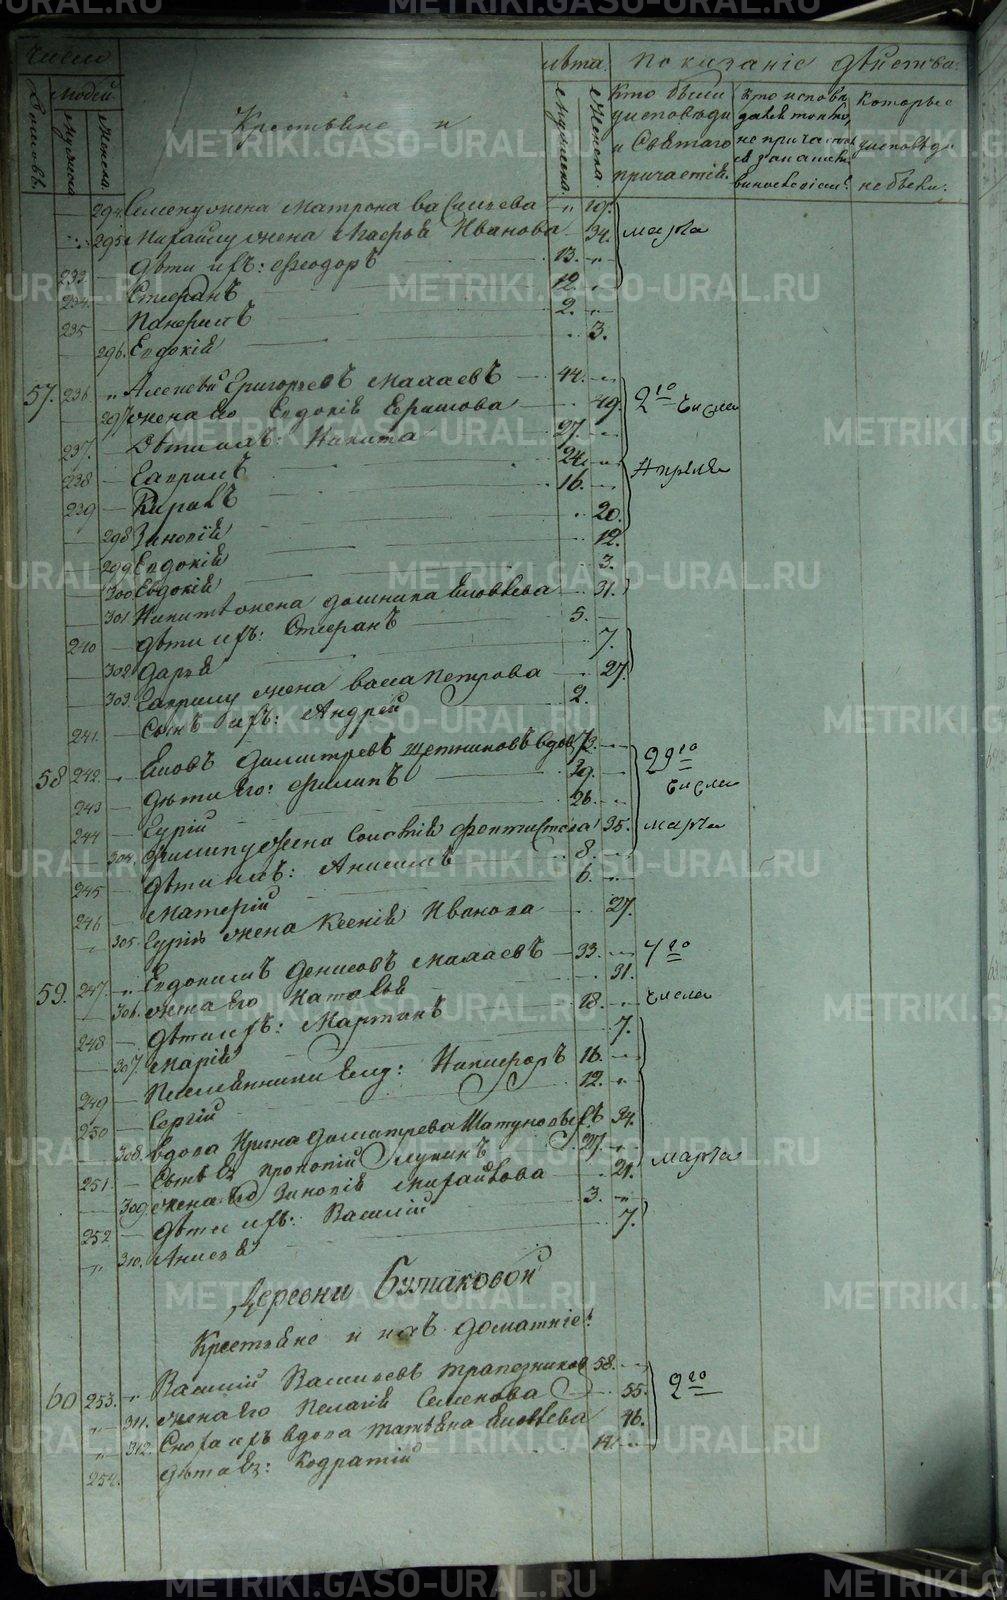 Число
Людей
лѣта. Показаніе дѣйства.
Домовъ. Мужеска Женска
Мужеска. Женска.
Кто были у исповѣди и Святаго причастія.
Кто исповѣдался токмо, не причастился
Которые у исповѣди не были.
Крестьяне и
294. Семену жена Матрона Васильева " 19.
295. Михайлу жена Марфа Иванова 34. марта
233. дѣти ихъ: Феодоръ 13.
234. Стефанъ 12.
235 Панфилъ 2.
296. Евдокія 3.
57. 236 Алексѣй Григорьевъ Малаевъ 44. 2го числа
297 жена его Евдокія Ефимова 49.
237. Дѣти ихъ: Никита 27.
238 Гаврилъ 24. Апреля
239 Кирилъ 16.
298 Зиновія 20.
299 Евдокія 12.
300 Евдокія 3.
301 Никитѣ жена домника Іовлева 31.
240 дѣти ихъ: Стефанъ 5.
302 дарья 7.
303. Гаврилу жена васа Петрова 27.
241. Сынъ ихъ: Андрей 2.
58 242. Іовъ Димитревъ Щетниковъ вдовъ 72. 29го числа
243 дѣти Его: Филипъ 39.
244 Гурій 26.
304. Филипу жена Феоктистова 35. марта
245 дѣти ихъ: Анисимъ 8.
246 Матерій 6.
305. Гурію жена Ксенія Иванова 27.
59. 247. Евдокимъ Денисовъ Малаевъ 33. 4го
306. жена его Наталья 31. числа
248 дѣти ихъ: Мартинъ 18.
307. Марія 7.
249 Племянники Ему: Никифоръ 16.
250 Сергій 12.
308. вдова Ирина Димитрева Шатуновыхъ 54. марта
251 Сынъ Ея Прокопій Лукинъ 27.
309 жена Его Зиновія Михайлова 21.
252 дѣти ихъ: Василій 3.
310. Анисья 7.
Деревни Бутаковой
Крестьяне и ихъ домашніе:
60 253. Василій Васильевъ Трапезниковъ 58. 2го
311. жена его Пелагія Семенова 55.
312. Сноха ихъ вдова Татьяна Іовлева 46.
254. дѣти Ея: Кодратій 14.